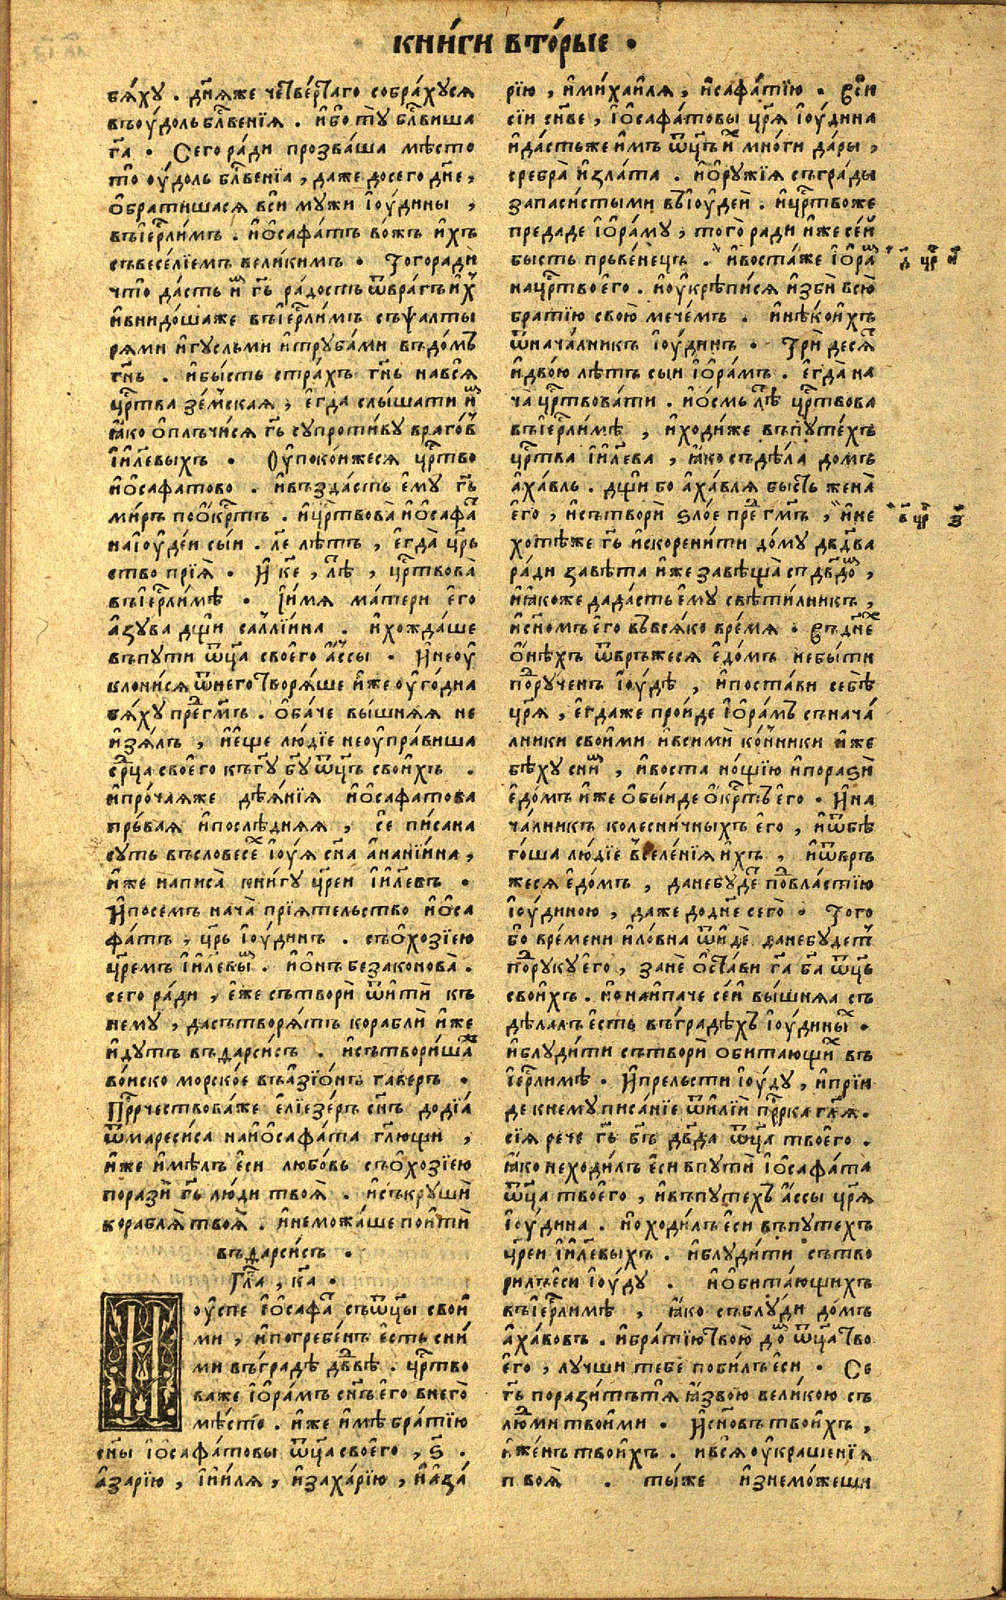 кни́ги вто́рые .
бѧ́ху . дн҃ѧже четве́ртаго собра́хусѧ
въоу́доль бл҃ве́нїѧ . и҆бо тꙋ̀ бл҃виша
г҃а . Сего ра́ди прозва́ша мѣ́сто
то̀ оу́доль бл҃ве́нїа , даже досего̀ дн҃е ,
обрати́шасѧ вси мꙋжи і҆оу́дины ,
въіер҃лимъ . и҆осафатъ вожъ и҆хъ
съвесе́лїемъ вели́кимъ . Того ради
что да́сть и҆м гь҃ ра́дость ѿвра́гъ и҆х
и҆внидо́шаже въіер҃ли́мъ съѱалты
рѧми и҆гꙋсльми и҆трꙋба́ми въдо́мъ
гн҃ь . и҆бы́сть стра́хъ гн҃ь навсѧ̀
цр҃тва зе́мскаѧ , е҆гда слы́шати и҆м
ꙗ҆ко о҆плъчи́сѧ гь҃ сꙋпроти́вꙋ враго́в
і҆и҃левыхъ . Оу҆поко́ижесѧ цр҃тво
и҆осафатово . и҆въздасть е҆мꙋ̀ гь҃
ми́ръ поо́кр҃тъ . и҆цр҃твова и҆осафа
наі҆оуде́и сы́и . л҃е лѣтъ , е҆гда̀ цр҃ь
ство прїѧ̀ . И҆ к҃е , лѣ , цр҃твова̀
въіер҃ли́мѣ . И҆и́мѧ ма́тери е҆го̀
а҆зꙋва дщи́и саллїи́на . и҆хожда́ше
въпꙋти ѿц҃а своего̀ а҆ссы . И҆неоу
клони́сѧ ѿнего̀ творѧ́ше и҆же оу҆го́дна
бѧ́хꙋ пре гм҃ъ . о҆ба́че вы́шнѧѧ не
и҆зѧ́лъ , и҆е҆ще лю́дїе неоу҆пра́виша
ср҃ца своего̀ къг҃ꙋ б҃ꙋ ѿц҃ъ свои́хъ .
и҆про́чаѧже дѣѧ́нїѧ и҆осафатова
пръ́ваѧ и҆послѣ́днѧѧ , се пи́сана
сꙋть въсловесе і҆оу́ѧ сн҃а а҆нани́ина ,
и҆же написа̀ кни́гꙋ цр҃еи і҆и҃левъ .
И҆посемъ нача̀ прїѧтельство и҆оса
фатъ , цр҃ь і҆оу́динъ . съо҆хозі́ею
цр҃емъ і҆и҃левы . и҆о҆нъ безаконова̀ .
сего ра́ди , е҆же сътворѝ ѿи҆ти къ
немꙋ̀ , дасътворѧ́тъ кораблѝ и҆же
и҆дꙋтъ въдарси́съ . и҆сътвори́ша
во́иско морско́е въа҆зїо́нъ гаверъ .
Пр҃рчествова́же е҆лїезе́ръ сн҃ъ доді́а
ѿмареси́са наи҆осафата гл҃ющи ,
и҆же и҆мѣ́лъ е҆си любо́вь съо҆хозі́ею
поразѝ гь҃ лю́ди твоѧ̀ . и҆съкрꙋшѝ
кораблѧ̀ твоѧ̀ . и҆немо́жаше пои҆тѝ
въдарси́съ .
Гл҃а , к҃а .
И оу҆спе і҆осафа съѿц҃ы свои
ми , и҆погребе́нъ е҆сть сни
ми въгра́дѣ дв҃ѣ . цр҃тво
важе і҆ора́мъ сн҃ъ е҆го внего̀
мѣсто . и҆же и҆мѣ бра́тїю
сн҃ы і҆осафатовы ѿц҃а своего , ѕ҃ .
а҆зарїю , і҆и́илѧ , и҆заха́рїю , и҆а҆за́
рїю , и҆миха́илѧ , и҆сафатїю . Вси
сїи сн҃ве , і҆осафатовы цр҃ѧ і҆оу́дина
и҆да́стьже и҆мъ ѿц҃ъ и҆х мно́ги да́ры ,
сребра̀ и҆зла́та . и҆о҆рꙋжїѧ съгра́ды
запаси́стыми въі҆оуде́и . и҆цр҃твоже
предаде і҆ора́мꙋ , того̀ ради и҆же се́и
бы́сть пръве́нецъ . и҆воста́же і҆ора
нацр҃тво е҆го . и҆оу҆крѣпи́сѧ и҆зби всю̀
бра́тїю свою̀ мече́мъ . и҆нѣ́коихъ
ѿнача́лникъ і҆оу́динъ . Три десѧ
и҆двою̀ лѣтъ сыи і҆ора́мъ . е҆гда на
ча̀ цр҃твовати . и҆о́смь лѣ цр҃твова
въіер҃ли́мѣ , и҆ходи́же въпꙋте́хъ
цр҃тва і҆и҃лева , ꙗ҆ко съдѣ́ла до́мъ
а҆ха́вль . дщи бо а҆ха́влѧ бысть жена̀
е҆го , и҆сътворѝ ѕло́е пре гм҃ъ , и҆не
хотѣ́же гь҃ и҆скорени́ти до́мꙋ дв҃два
ра́ди завѣта и҆же завѣща̀ сдв҃дом ,
и҆ꙗ҆коже дада́сть е҆мꙋ̀ свѣти́лникъ ,
и҆сн҃омъ е҆го въвсѧ́ко вре́мѧ . Въдне
о҆нѣхъ ѿврь́жесѧ е҆до́мъ небы́ти
порꙋченъ і҆оу́дѣ , и҆поста́ви себѣ̀
цр҃ѧ , е҆гдаже про́иде і҆ора́мъ снача́
лники свои́ми и҆всими ко́нники и҆же
бѣхꙋ сним , и҆воста но́щїю и҆поразѝ
е҆до́мъ и҆же о҆бы́иде о҆кр҃тъ е҆го . И҆на
ча́лникъ колесни́чныхъ е҆го , и҆ѿбѣ
го́ша лю́дїе вселе́нїѧ и҆хъ , и҆ѿвръ
жесѧ е҆до́мъ , данебꙋде повла́стїю
і҆оу́диною , даже додн҃е сего̀ . Того
бо вре́мени и҆ло́вна ѿи҆дѐ данебꙋдет
порꙋкꙋ е҆го , занѐ о҆ста́ви г҃а б҃а ѿц҃ъ
свои́хъ . но наи́паче се́и вы́шнѧа съ
дѣлалъ е҆сть въгра́дѣхъ і҆оу́дины .
и҆блꙋди́ти сътворѝ обитающих въ
іер҃ли́мѣ . И҆прельсти і҆оу́дꙋ , и҆прїи
де кнемꙋ писа́нїе ѿи҆лїѝ пр҃рка гл҃ѧ .
сїѧ рече гь҃ бг҃ъ дв҃да ѿц҃а твоего̀ .
ꙗ҆ко неходи́лъ е҆си впꙋтѝ і҆осафата
ѿц҃а твоего , и҆въпꙋте́хъ а҆ссы цр҃ѧ
і҆оу́дина . но ходи́лъ е҆си въпꙋте́хъ
цр҃еи і҆и҃левыхъ . и҆блꙋди́ти сътво
рилъ е҆си і҆оу́дꙋ . и҆о҆бита́ющихъ
въіер҃ли́мѣ , ꙗ҆ко съблꙋди до́мъ
а҆ха́вовъ . и҆бра́тїю твою̀ до ѿц҃а тво
е҆го , лꙋчши тебѐ поби́лъ е҆си . Се
гь҃ порази́тътѧ ꙗ҆звою вели́кою съ
людми твои́ми . И҆сн҃овъ твои́хъ ,
и҆же́нъ твои́хъ . и҆всѧ̀ оу҆краше́нїѧ
твоѧ̀ . ты́же и҆знемо́жеши